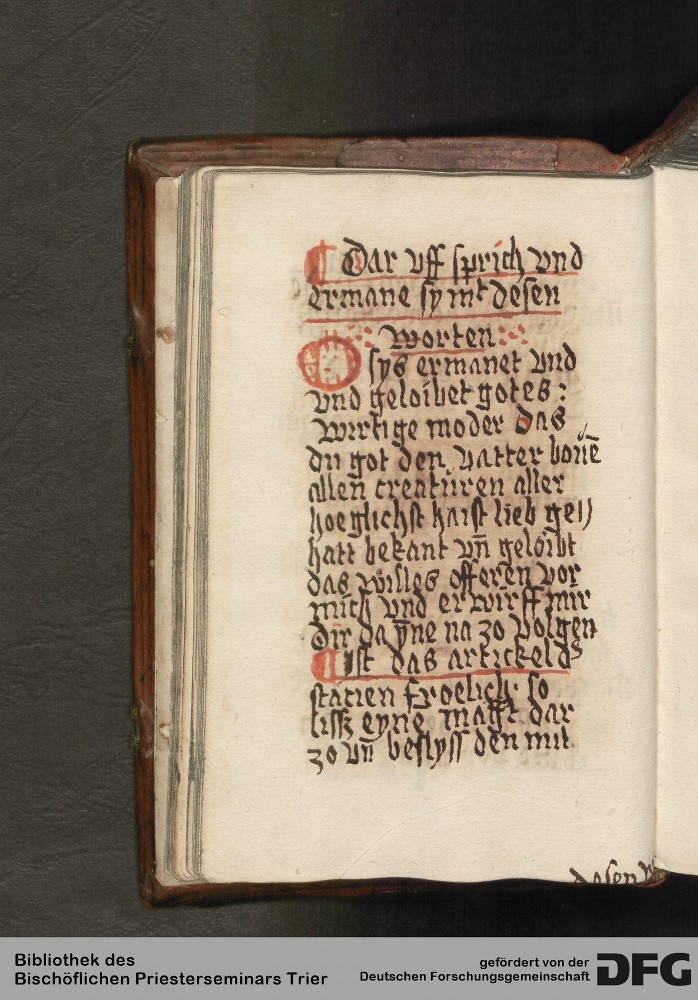 Dar vff sprich vnd
ermane sy mt desen
worten
O sys ermanet vnd
vnd geloibet gotes :
wirtige moder das
du got den vatter bouē
allen creaturen aller
hoeglichst haist lieb ge
hatt bekant vn̄ geloibt
das willes offeren vor
mich vnd erwirff mir
dir da yne na zo volgen
Ist das artickel ds
statien froelich so
lissz eyne mafft dar
zo vn̄ beslyss den mit
desen
Bibliothek des
Bischöflichen Priesterseminars Trier
gefördert von der
Deutschen Forschungsgemeinschaft
DFG